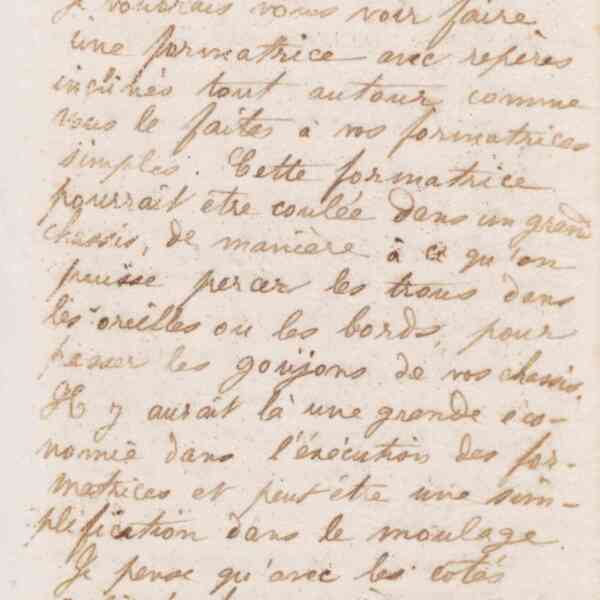 je voudrais vous voir faire
une formatrice avec repères
inclinés tout autour comme
vous le faites à vos formatrices
simples. Cette formatrice
pourrait être coulée dans un grand
chassis, de manière à ce qu'on
puisse percer les trous dans
les oreilles ou les bords, pour
passer les goujons de vos chassis.
Il y aurait là une grande éco-
nomie dans l'exécution des for-
matrices et peut être une sim-
plification dans le moulage.
Je pense qu'avec les cotés